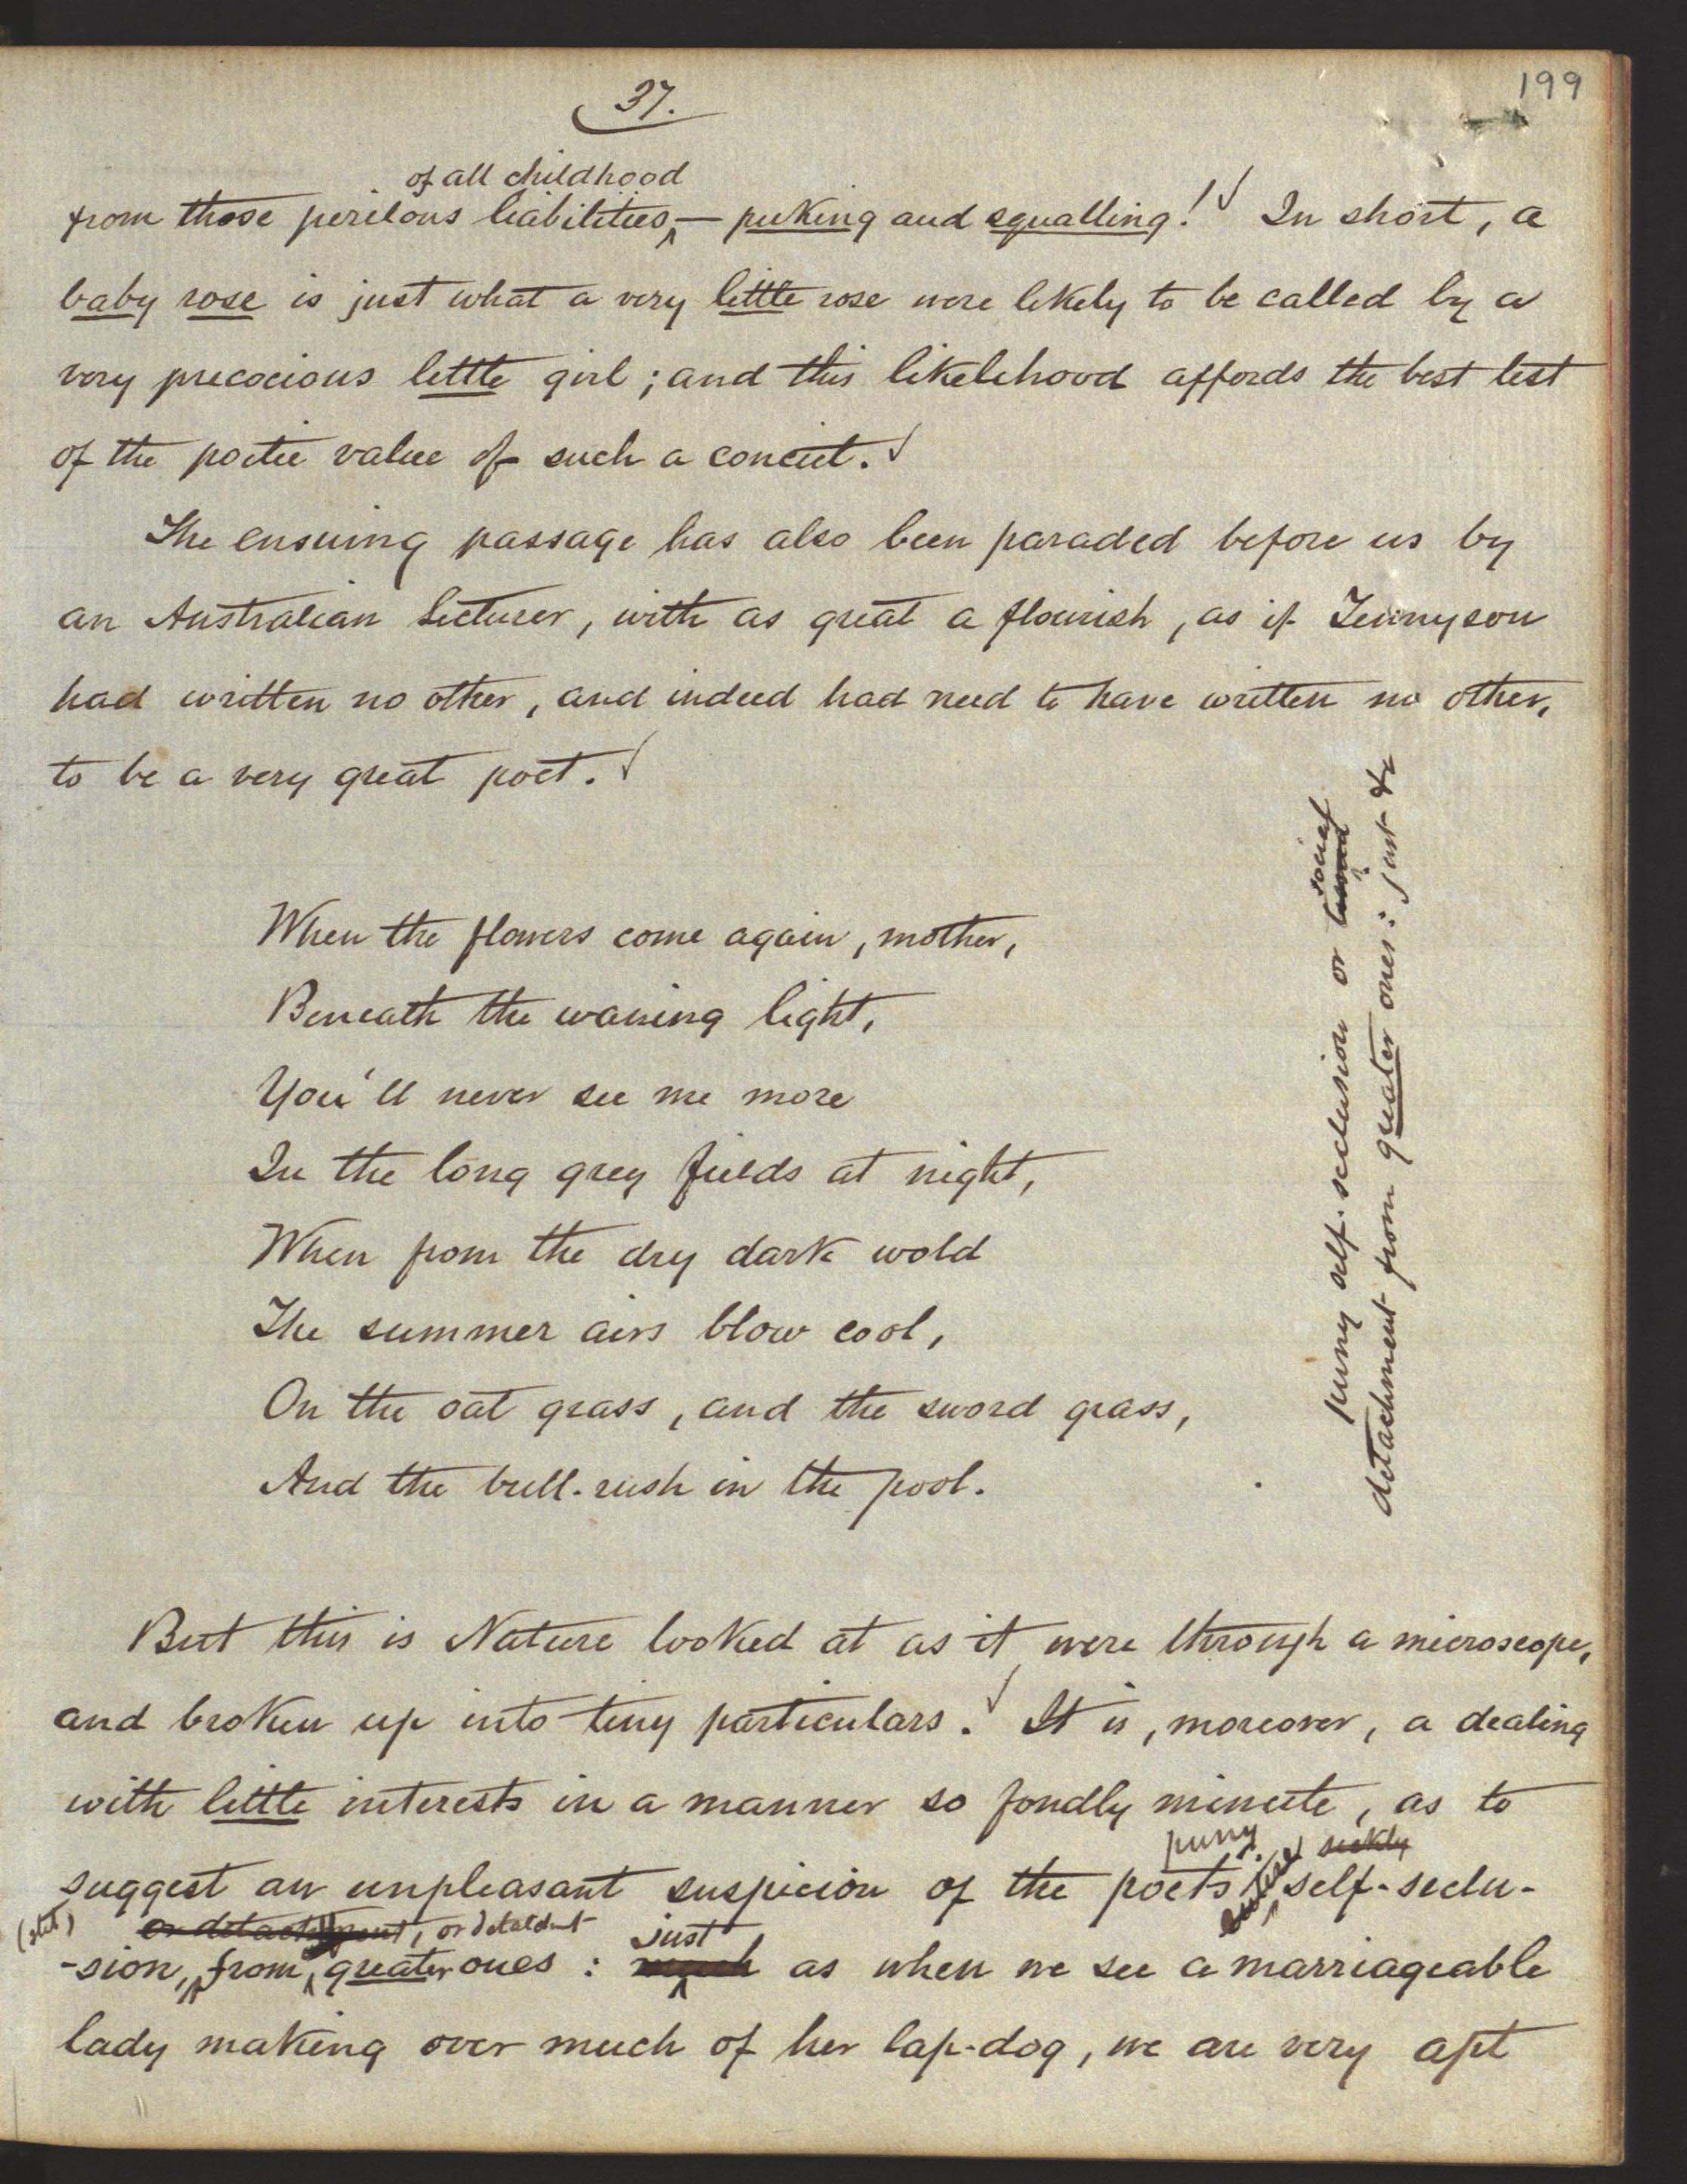 199
37.
of all childhood
from those perilous liabilities, — puking and squalling! In short, a
baby rose is just what a very little rose were likely to be called by a
very precocious little girl; and this likelihood affords the best test
of the poetic value of such a conceit.
The ensuing passage has also been paraded before us by
an Australian Lecturer, with as great a flourish, as if Tennyson
had written no other, and indeed had need to have written no other,
to be a very great poet.
When the flowers come again, mother,
Beneath the waning light,
You'll never see me more
In the long grey fields at night,
When from the dry dark wold
The summer airs blow cool,
On the oat grass, and the sword grass,
And the bull-rush in the pool.
But this is Nature looked at as it were through a microscope,
and broken up into tiny particulars. It is, moreover, a dealing
with little interests in a manner so fondly minute, as to
puny sickly
suggest an unpleasant suspicion of the poets self-seclu-
(stet) or detachment, or detachdnt just
-sion, from greater ones: much as when we see a marriageable
lady making over much of her lap-dog, we are very apt
social
puny self-seclusion or
detachment from greater ones: just &c